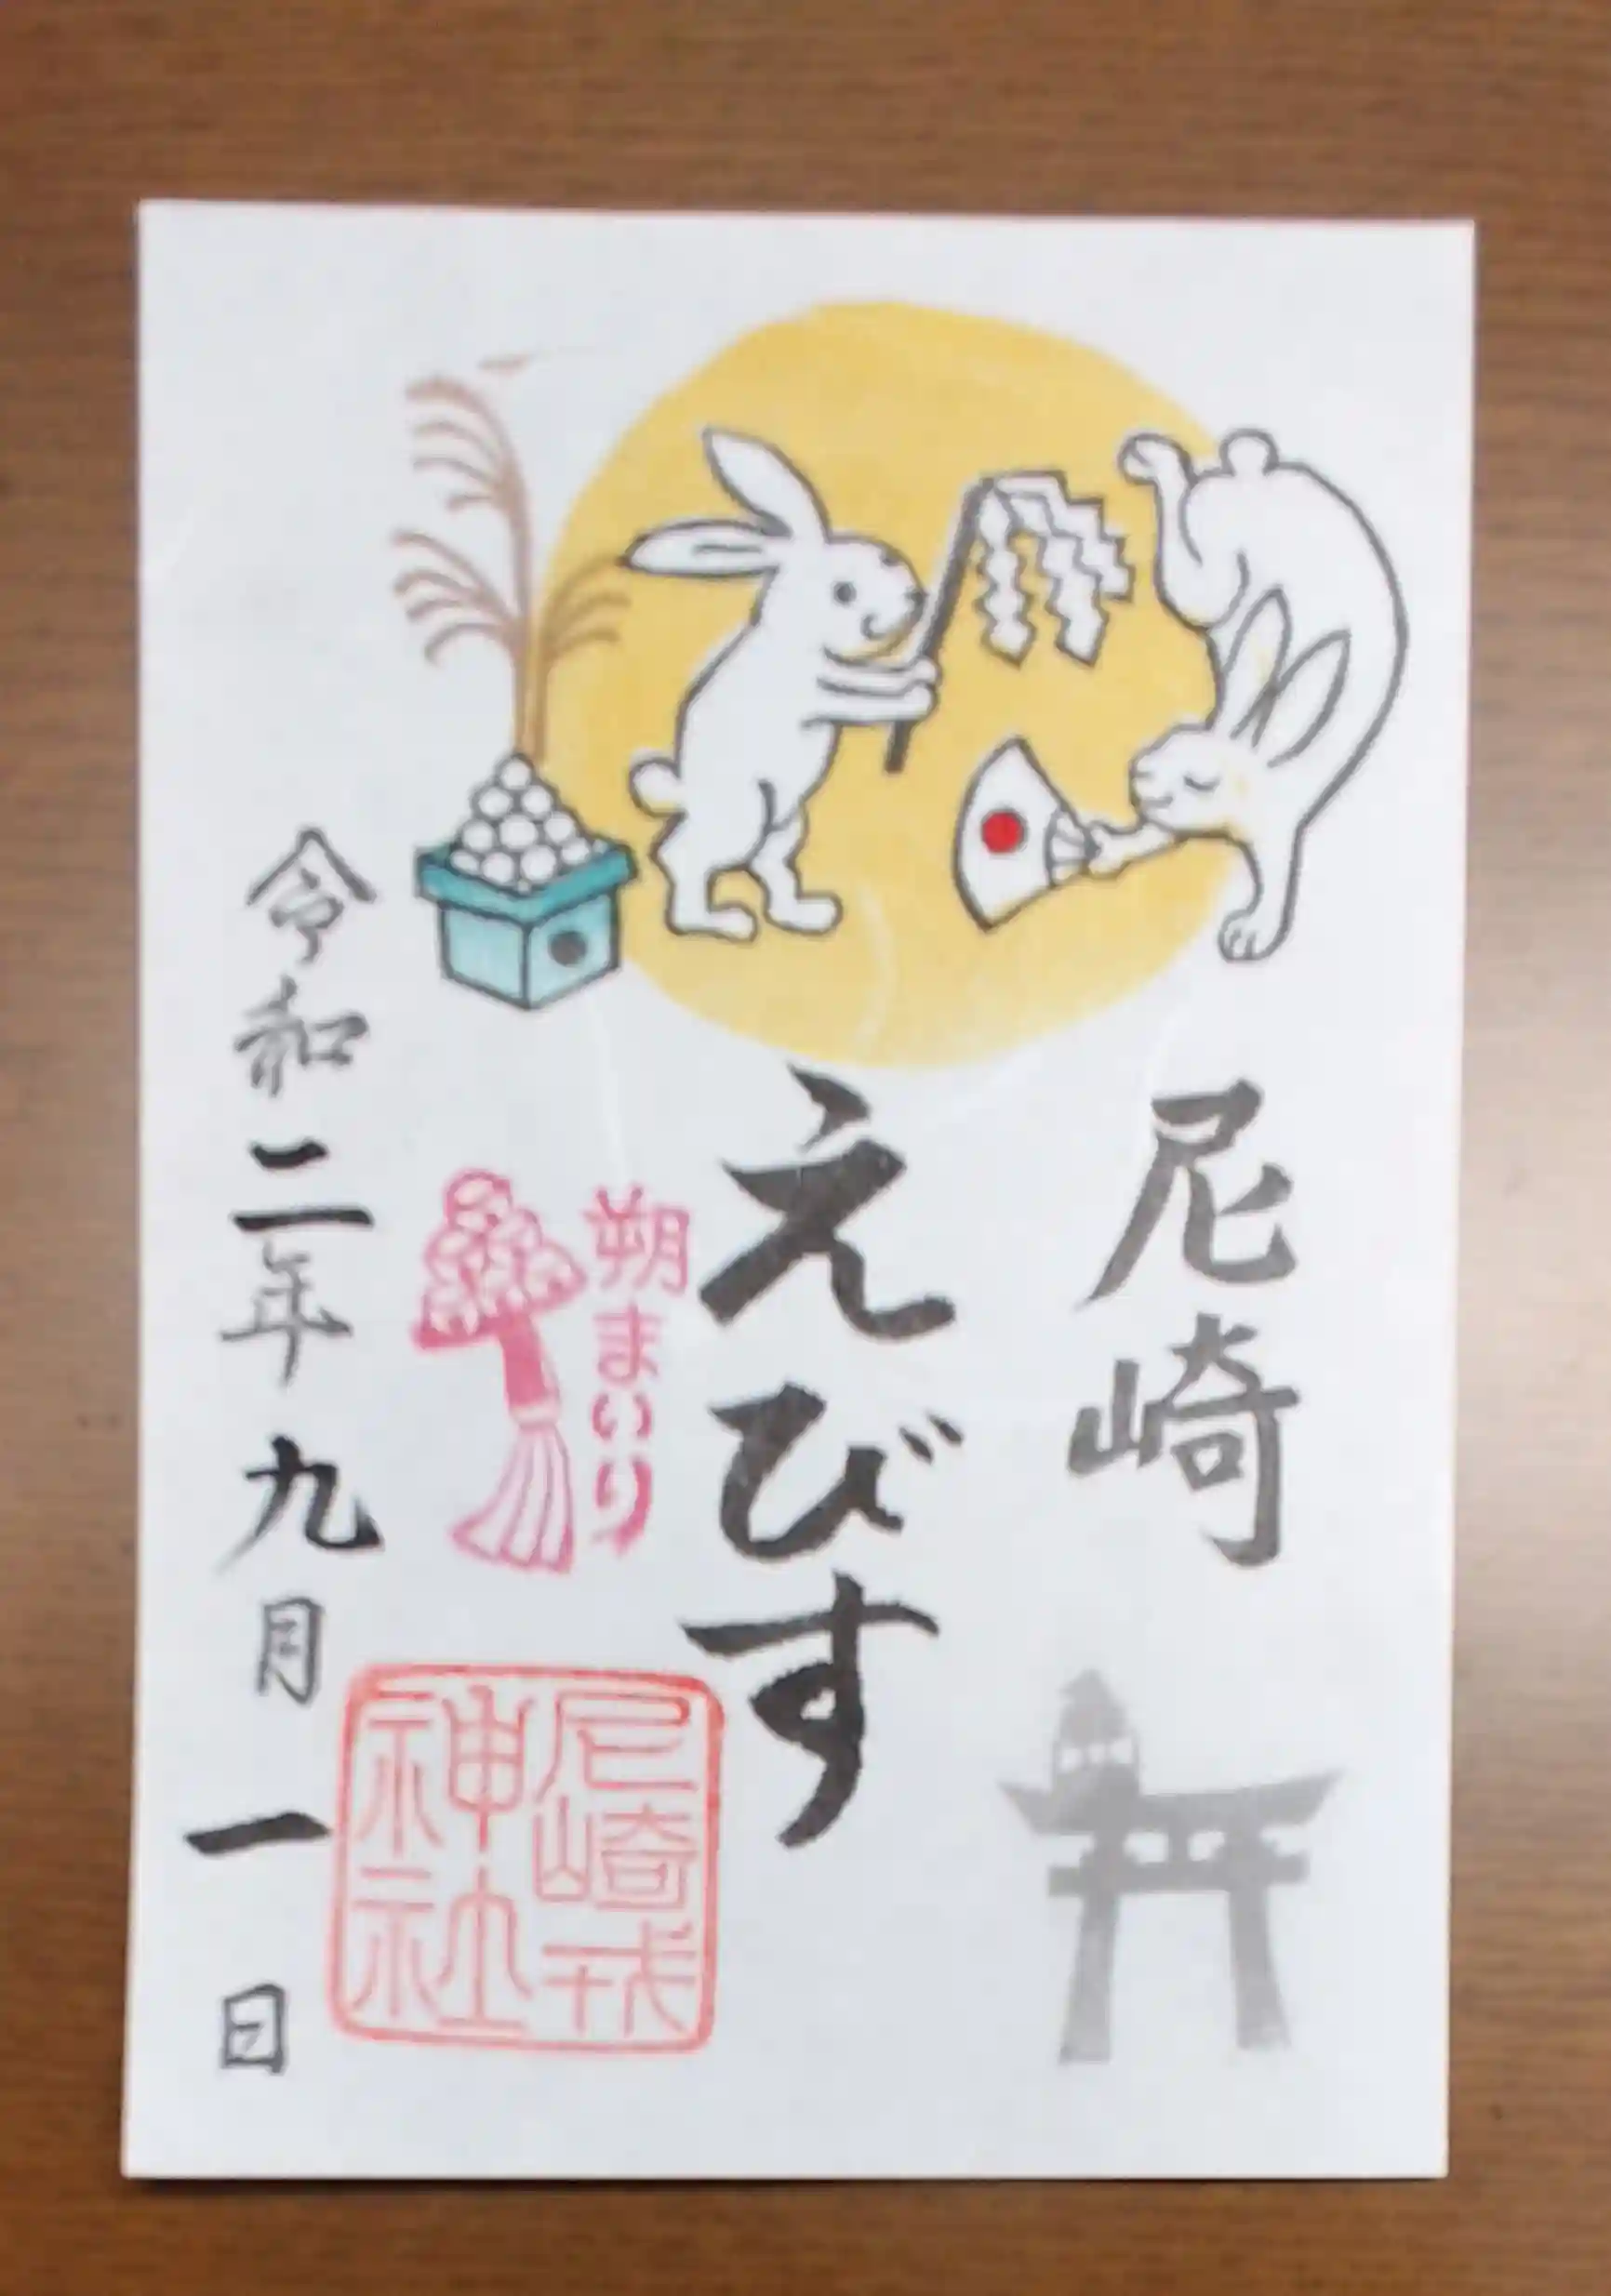 尼崎
えびす
朔まいり
尼崎戎
神社
令和二年九月一日